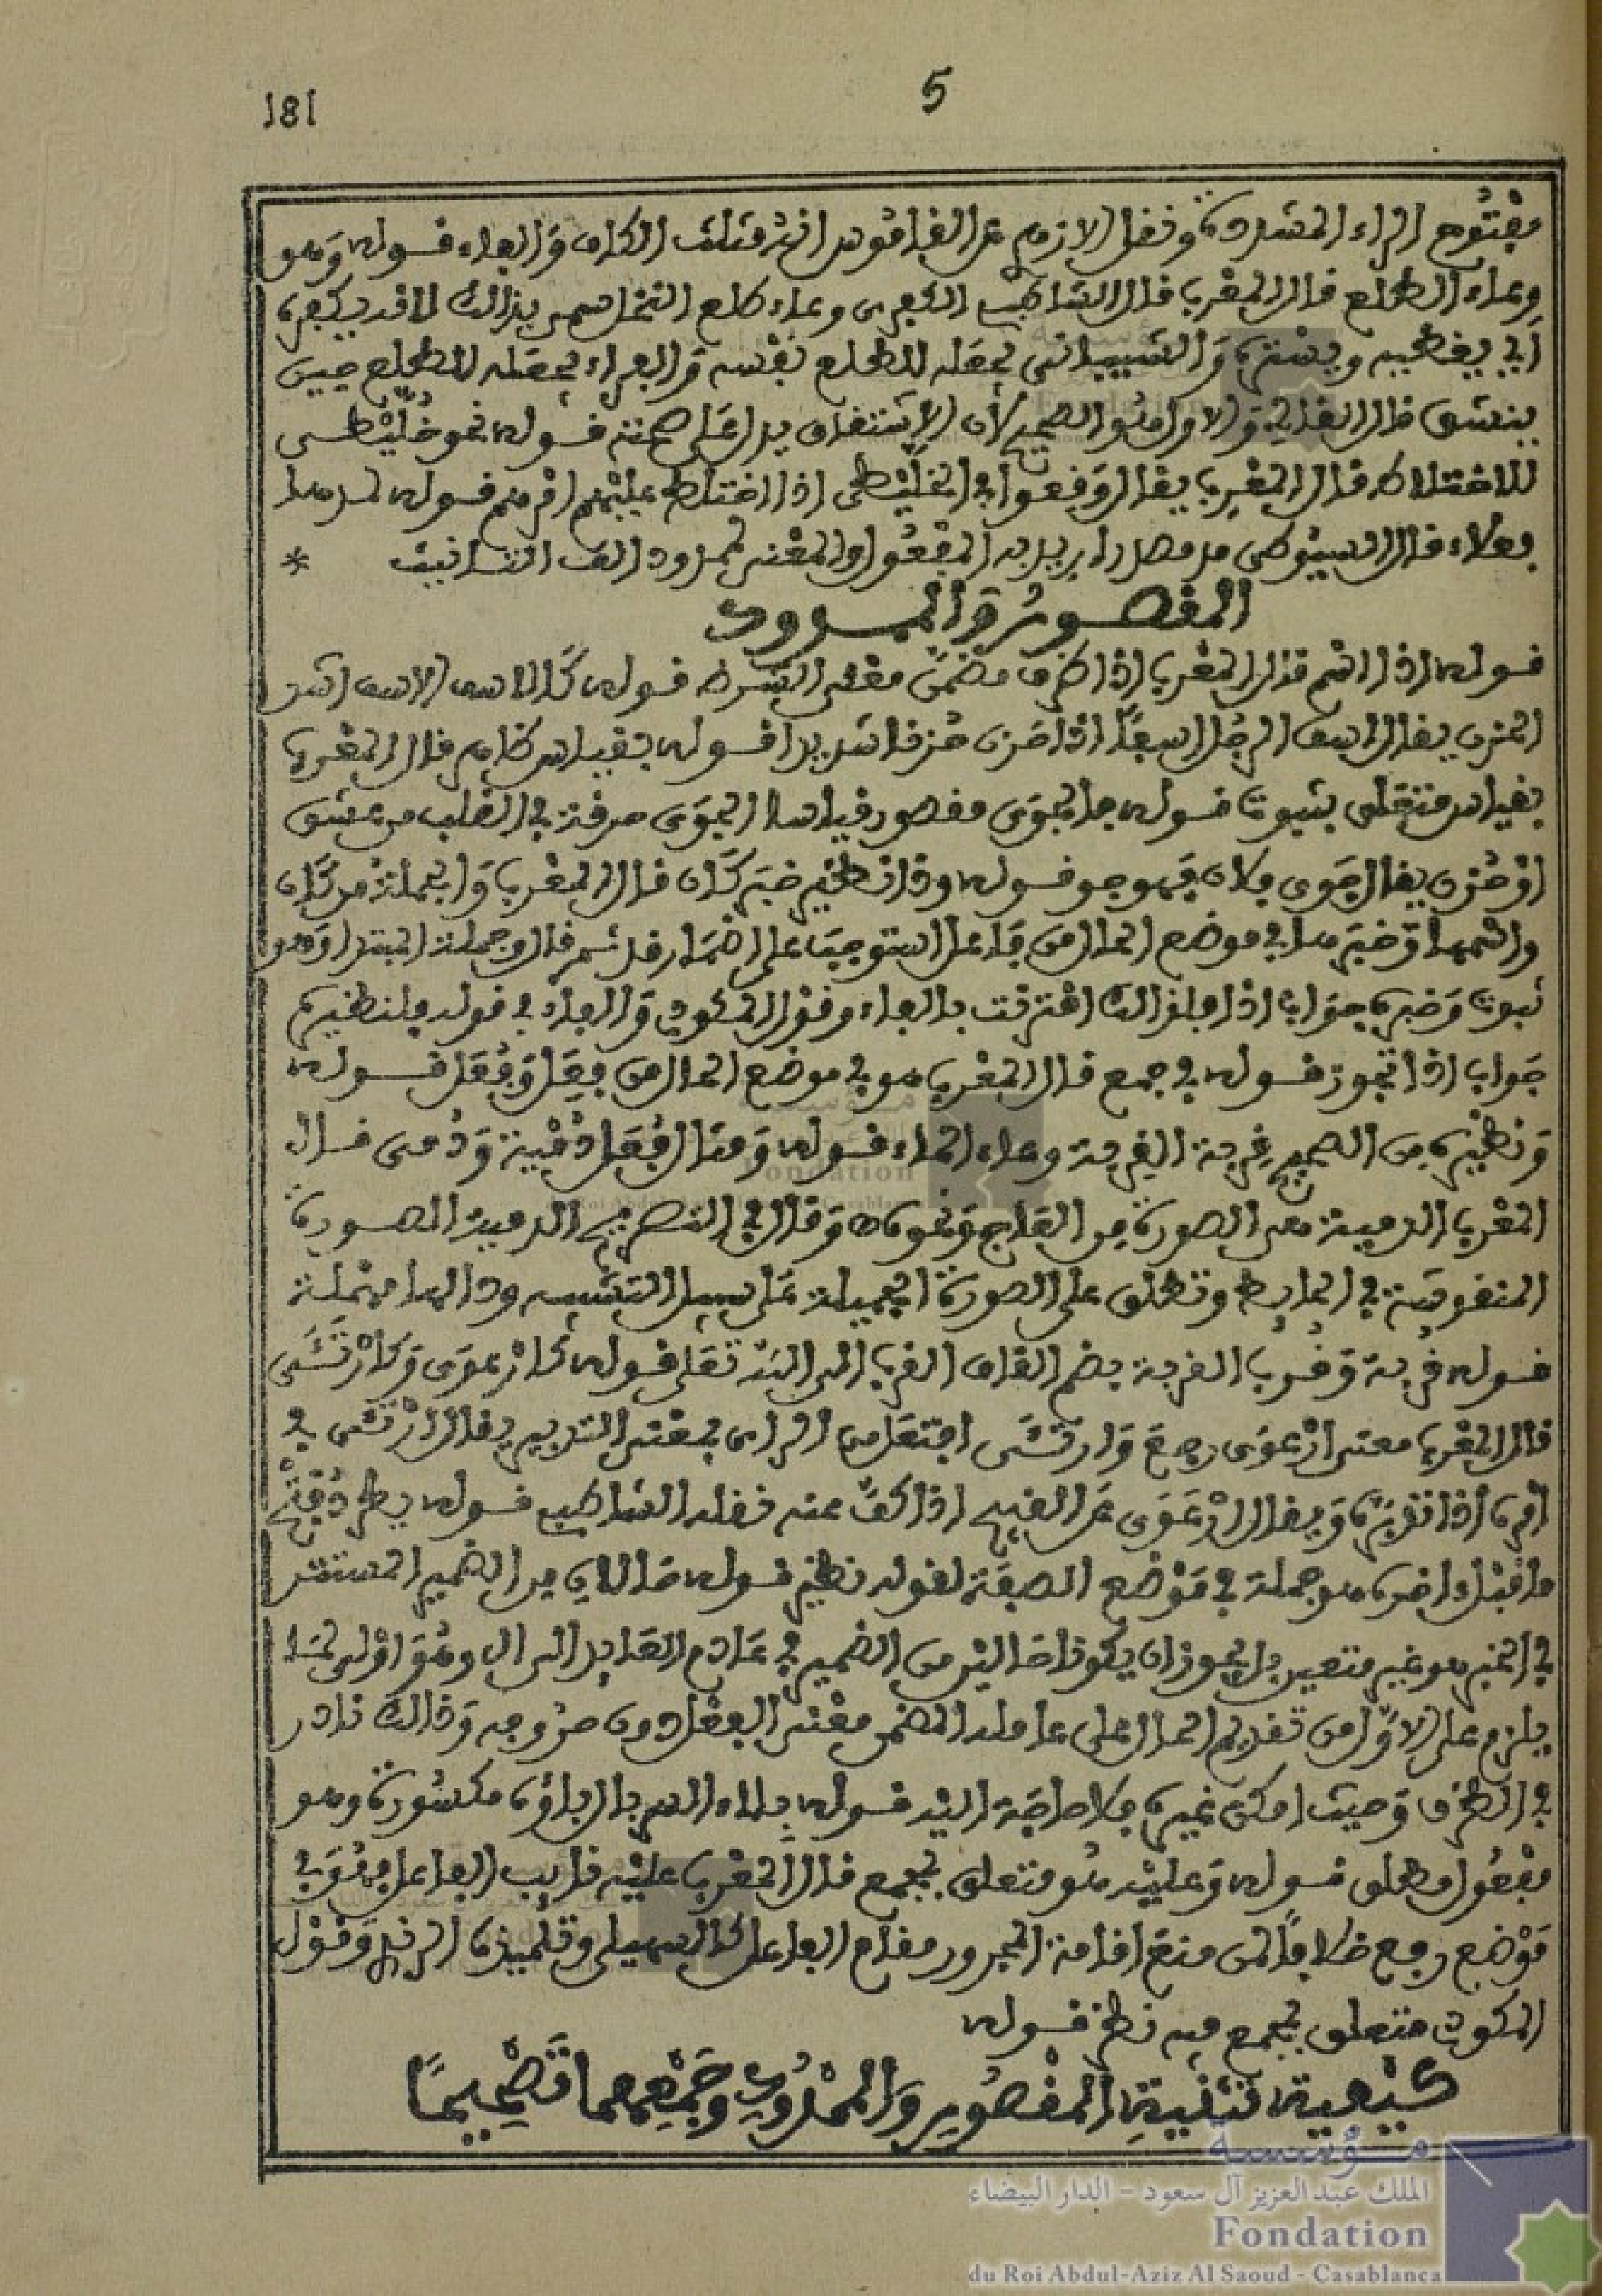 5
181
مفتوح الراء المشددة ونقل الازهري عن القاموس انه مثلث الكاف والفاء قوله وهو
وعاء الطلع قال المعرب قال الشاطبي الكفرى وعاء طلع النخل سمي بذالك لانه يكفره
أي يغطيه ويستره والشيباني يجعله للطلع نفسه والفراء يجعله للطلع حين
ينشق قال القالي والاول هو الصحيح لأن الاشتقاق يدل على صحته قوله نحو خليطى
للاختلاط قال المعرب يقال وقعوا في الخليطى اذا اختلط عليهم امرهم قوله
فعلاء قال السيوطي مد مصدر اريد به المفعول والمعنى ممدود الف التانيث *
المقصور والممدود
قوله اذا اسم قال المعرب اذا ظرف مضمن معنى الشرط قوله كالاسف الاسف اشد
الحزن يقال اسف الرجل اسفا اذا حزن حزنا شديدا قوله بقياس ظاهر قال المعرب
بقياس متعلق بثبوت قوله فالجوى مقصور قياسا الجوى حرقة في القلب من عشق
او حزن يقال جوي فلان فهو جو قوله وذا نظير خبر كان قال المعرب والجملة من كان
واسمها وخبرها في موضع الحال من فاعل استوجب على اضمار قد ثم قال وجملة المبتدا وهو
ثبوت وخبره جواب اذا فلذالك اقترنت بالفاء وقول المكودي والفاء في قوله فلنظيره
جواب اذا تجوز قوله في جمع قال المعرب هو في موضع الحال من فعل وفعل قوله
ونظيره من الصحيح قربة القربة وعاء الماء قوله ومثال فعل دمية ودمى قال
المعرب الدمية هي الصورة من العاج ونحوه وقال في التصريح الدمية الصورة
المنقوشة في الحايط وتطلق على الصورة الجميلة على سبيل التشبيه ودالها مهملة
قوله قربة وقرب القربة بضم القاف القرب الى الله تعلى قوله كارعوى وكارتشى
قال المعرب معنى ارعوى رجع وارتشى افتعل من الراى بمعنى التدبير يقال ارتشى في
امره اذا تدبره ويقال ارعوى عن القبيح اذا كف عنه نقله الشاطبي قوله
ما قبل اخره هو جملة في موضع الصفة لقوله نظير قوله حالان من الضمير المستتر
في الخبر هو غير متعين بل يجوز ان يكونا حالين من الضمير في عادم العايد الى ال وهو اولى لما
يلزم على الاول من تقديم الحال على عامله المضمن معنى الفعل دون حروفه وذالك نادر
في الظرف وحيث امكن غيره فلا حاجة اليه قوله
مفعول مطلق قوله وعليه هو متعلق بجمع قال المعرب عليه نايب الفاعل فهو في
موضع رفع خلافا لمن منع اقامة المجرور مقام الفاعل كالسهيلي وتلميذه الرندي وقول
المكودي متعلق بجمع فيه نظر قوله
كيفية تثنية المقصور والممدود وجمعهما تصحيحا
مؤسسة
الملك عبد العزيز آل سعود - الدار البيضاء
Fondation
du Roi Abdul-Aziz Al Saoud - Casablanca